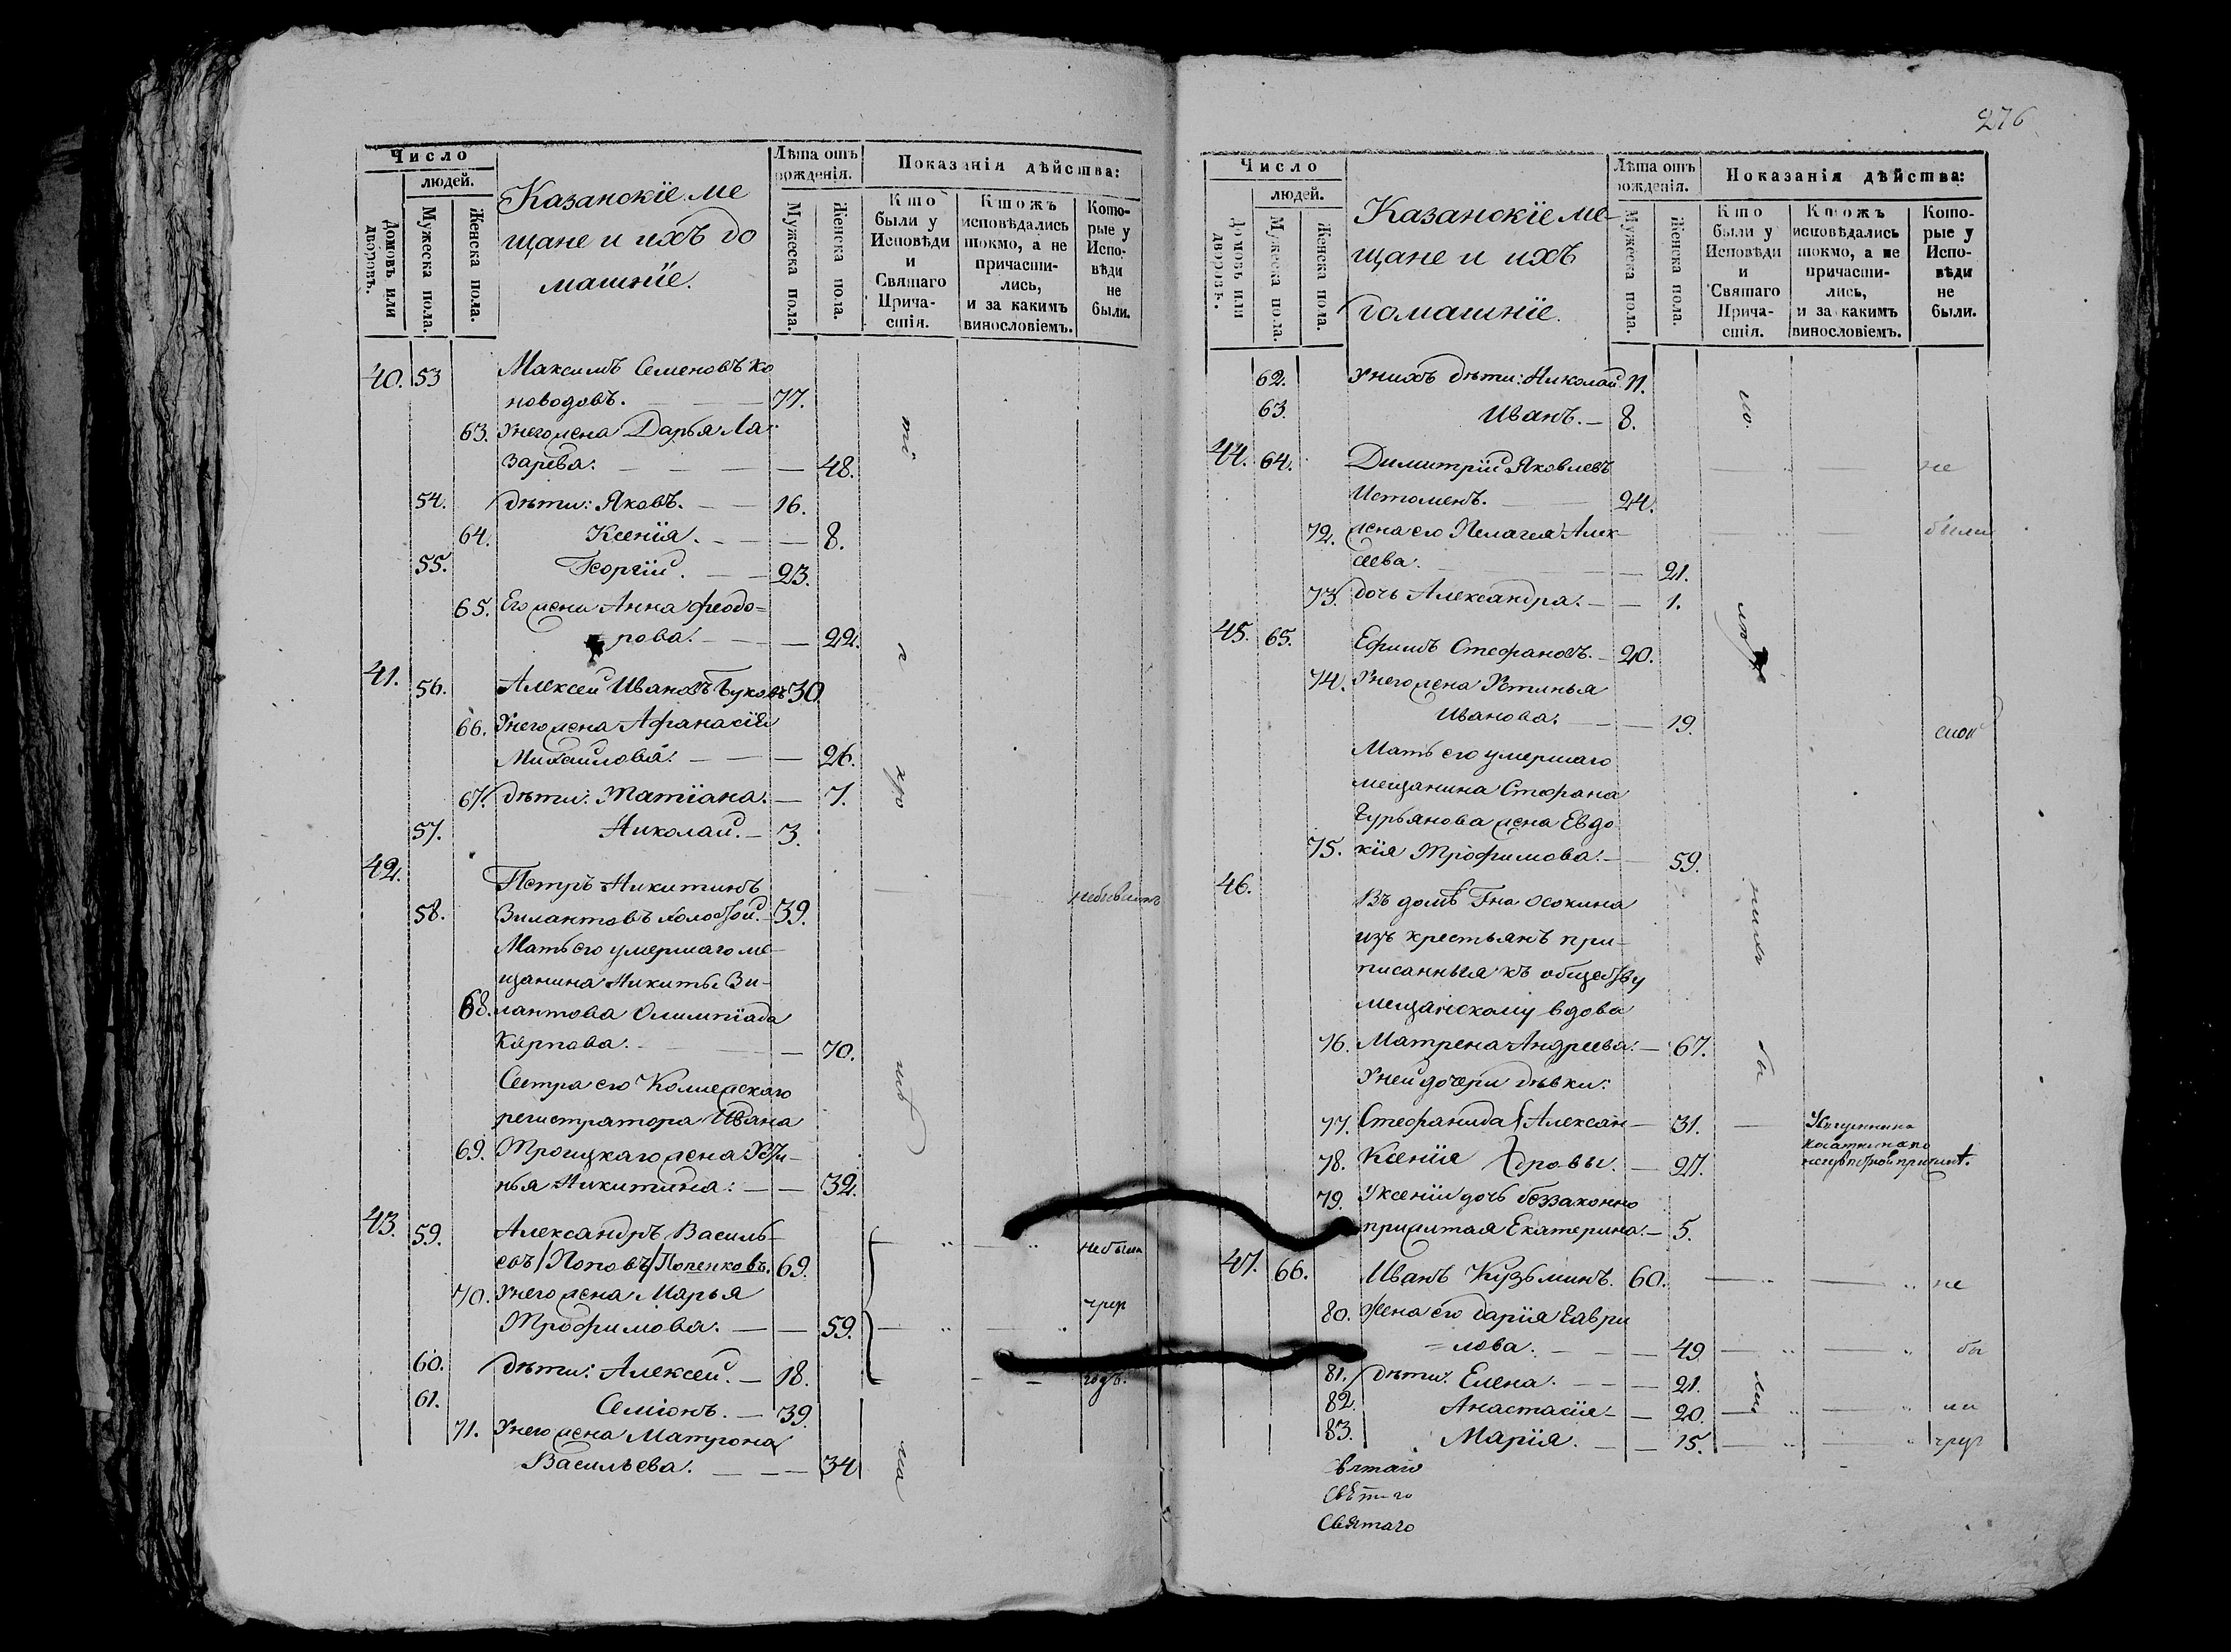 276
Число
людей.
Домовъ или дворовъ.
Мужеска пола.
Женска пола.
Казанскїе ме
щане и ихъ до
машнїе.
Лѣта отъ
рожденія.
Мужеска пола.
Женска пола.
Показанія дѣйства:
Кто были у Исповѣди и Святаго Прича-стія.
Ктожъ исповѣдались токмо, а не причасти-лись, и за какимъ винословіемъ.
Кото-рые у Испо-вѣди не были.
40. 53 Максимъ Семеновъ Ко
новодовъ. 77.
63. У него жена Дарья Ла-
зарева. 48.
54. дѣти: Яковъ. 16.
64. Ксенїя. 8.
55. Георгїй. 23.
65. Его жена Анна Феодо=
рова. 22.
41. 56. Алексей Ивановъ Буковъ 30
66. У него жена Афанасїя
Михайлова. 26.
67. дѣти: Татїана. 7.
57. Николай. 3.
42. Петръ Никитинъ
58. Вилантовъ холостой. 39.
Мать его умершаго ме-
щанина Никиты Ви-
68. лантова Олимпїада
Карпова. 70.
Сестра его Коллежскаго
регистратора Ивана
69. Троицкаго жена Усти-
нья Никитина: 32.
43. 59. Александръ Василь-
евъ /Поповъ/ Попенковъ. 69. не были
70. У него жена Марья
Трофимова. 59.
60. дѣти: Алексей. 18.
61. Семїонъ. 39.
71. У него жена Матрона
Васильева. 34
Число
людей.
Домовъ или дворовъ.
Мужеска пола.
Женска пола.
Казанскїе ме-
щане и ихъ
домашнїе.
Лѣта отъ
рожденія.
Мужеска пола.
Женска пола.
Показанія дѣйства:
Кто были у Исповѣди и Святаго Прича-стія.
Ктожъ исповѣдались токмо, а не причасти-лись, и за какимъ винословіемъ.
Кото-рые у Испо-вѣди не были.
62. У нихъ дѣти: Николай 11.
63. Иванъ. 8.
44. 64. Димитрїй Яковлевъ не
Истоминъ. 24.
72. жена его Пелагея Алек- были
сеева. 21.
73. дочь Александра. 1.
45. 65. Ефимъ Стефановъ. 20.
74. У него жена Устинья
Иванова. 19.
Мать его умершаго
мещанина Стефана
Гурьянова жена Евдо
75. кїя Трофимова. 59.
46. Въ домѣ Гна Осокина
изъ крестьянъ при-
писанныя къ обществу
мещанскому вдова
76. Матрена Андреева. 67.
У ней дочери дѣвки:
77. Стефанида Алексан- 31.
78. Ксенїя дровы. 27.
79. У Ксенїи дочь беззаконно
прижитая Екатерина. 5.
47. 66. Иванъ Кузьминъ. 60. не
80. Жена его Дарїя Гаври
=лова. 49 бы
81. дѣти: Елена. 21.
82. Анастасїя 20. ли
83. Марїя. 15.
Святаго